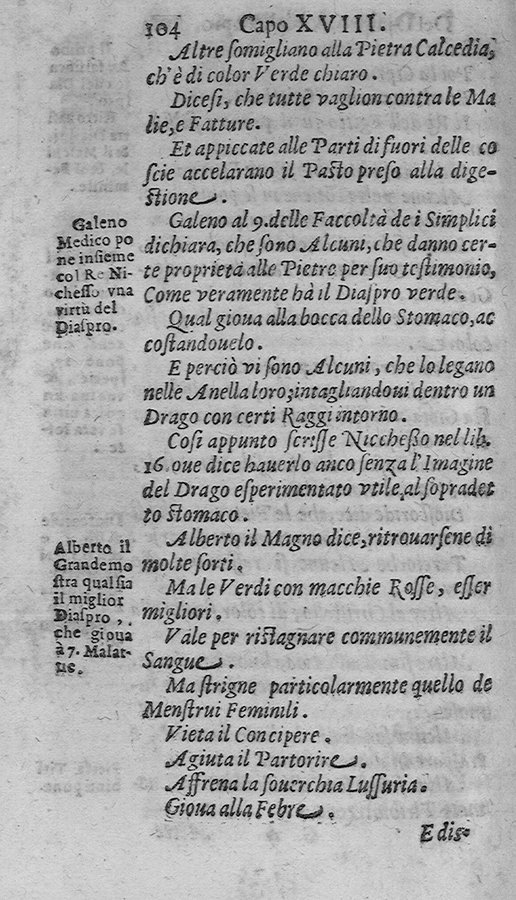 104 Capo XVIII.
Altre ſomigliano alla Pietra Calcedia,
ch'è di color Verde chiaro.
Diceſi, che tutte vaglion contra le Ma
lie, e Fatture.
Et appiccate alle Parti di fuori delle co
ſcie accelarano il Paſto preſo alla dige-
ſtione.
Galeno al 9. delle Facoltà de i Simplici
dichiara, che ſono Alcuni, che danno cer-
te proprietà alle Pietre per ſuo teſtimonio,
Come veramente hà il Diaſpro verde.
Qual gioua alla bocca dello Stomaco, ac
coſtandouelo.
E perciò vi ſono Alcuni, che lo legano
nelle Anella loro; intagliandoui dentro un
Drago con certi Raggi intorno.
Coſi appunto ſcriſſe Niccheßo nel lib.
16. oue dice hauerlo anco ſenza l'Imagine
del Drago eſperimentato vtile, al ſopradet
to ſtomaco.
Alberto il Magno dice, ritrouarſene di
molte ſorti.
Ma le Verdi con macchie Roſſe, eſſer
migliori.
Vale per riſtagnare communemente il
Sangue.
Ma ſtrigne particolarmente quello de
Menſtrui Feminili.
Vieta il Concipere.
Agiuta il Partorire.
Affrena la ſouerchia Luſſuria.
Gioua alla Febre.
E diſ-
Galeno
Medico po
ne inſieme
col Re Ni-
cheſſo vna
virtù del
Diaſpro.
Alberto il
Grande mo
ſtra qual ſia
il miglior
Diaſpro,
che gioua
à 7. Malat-
tie.